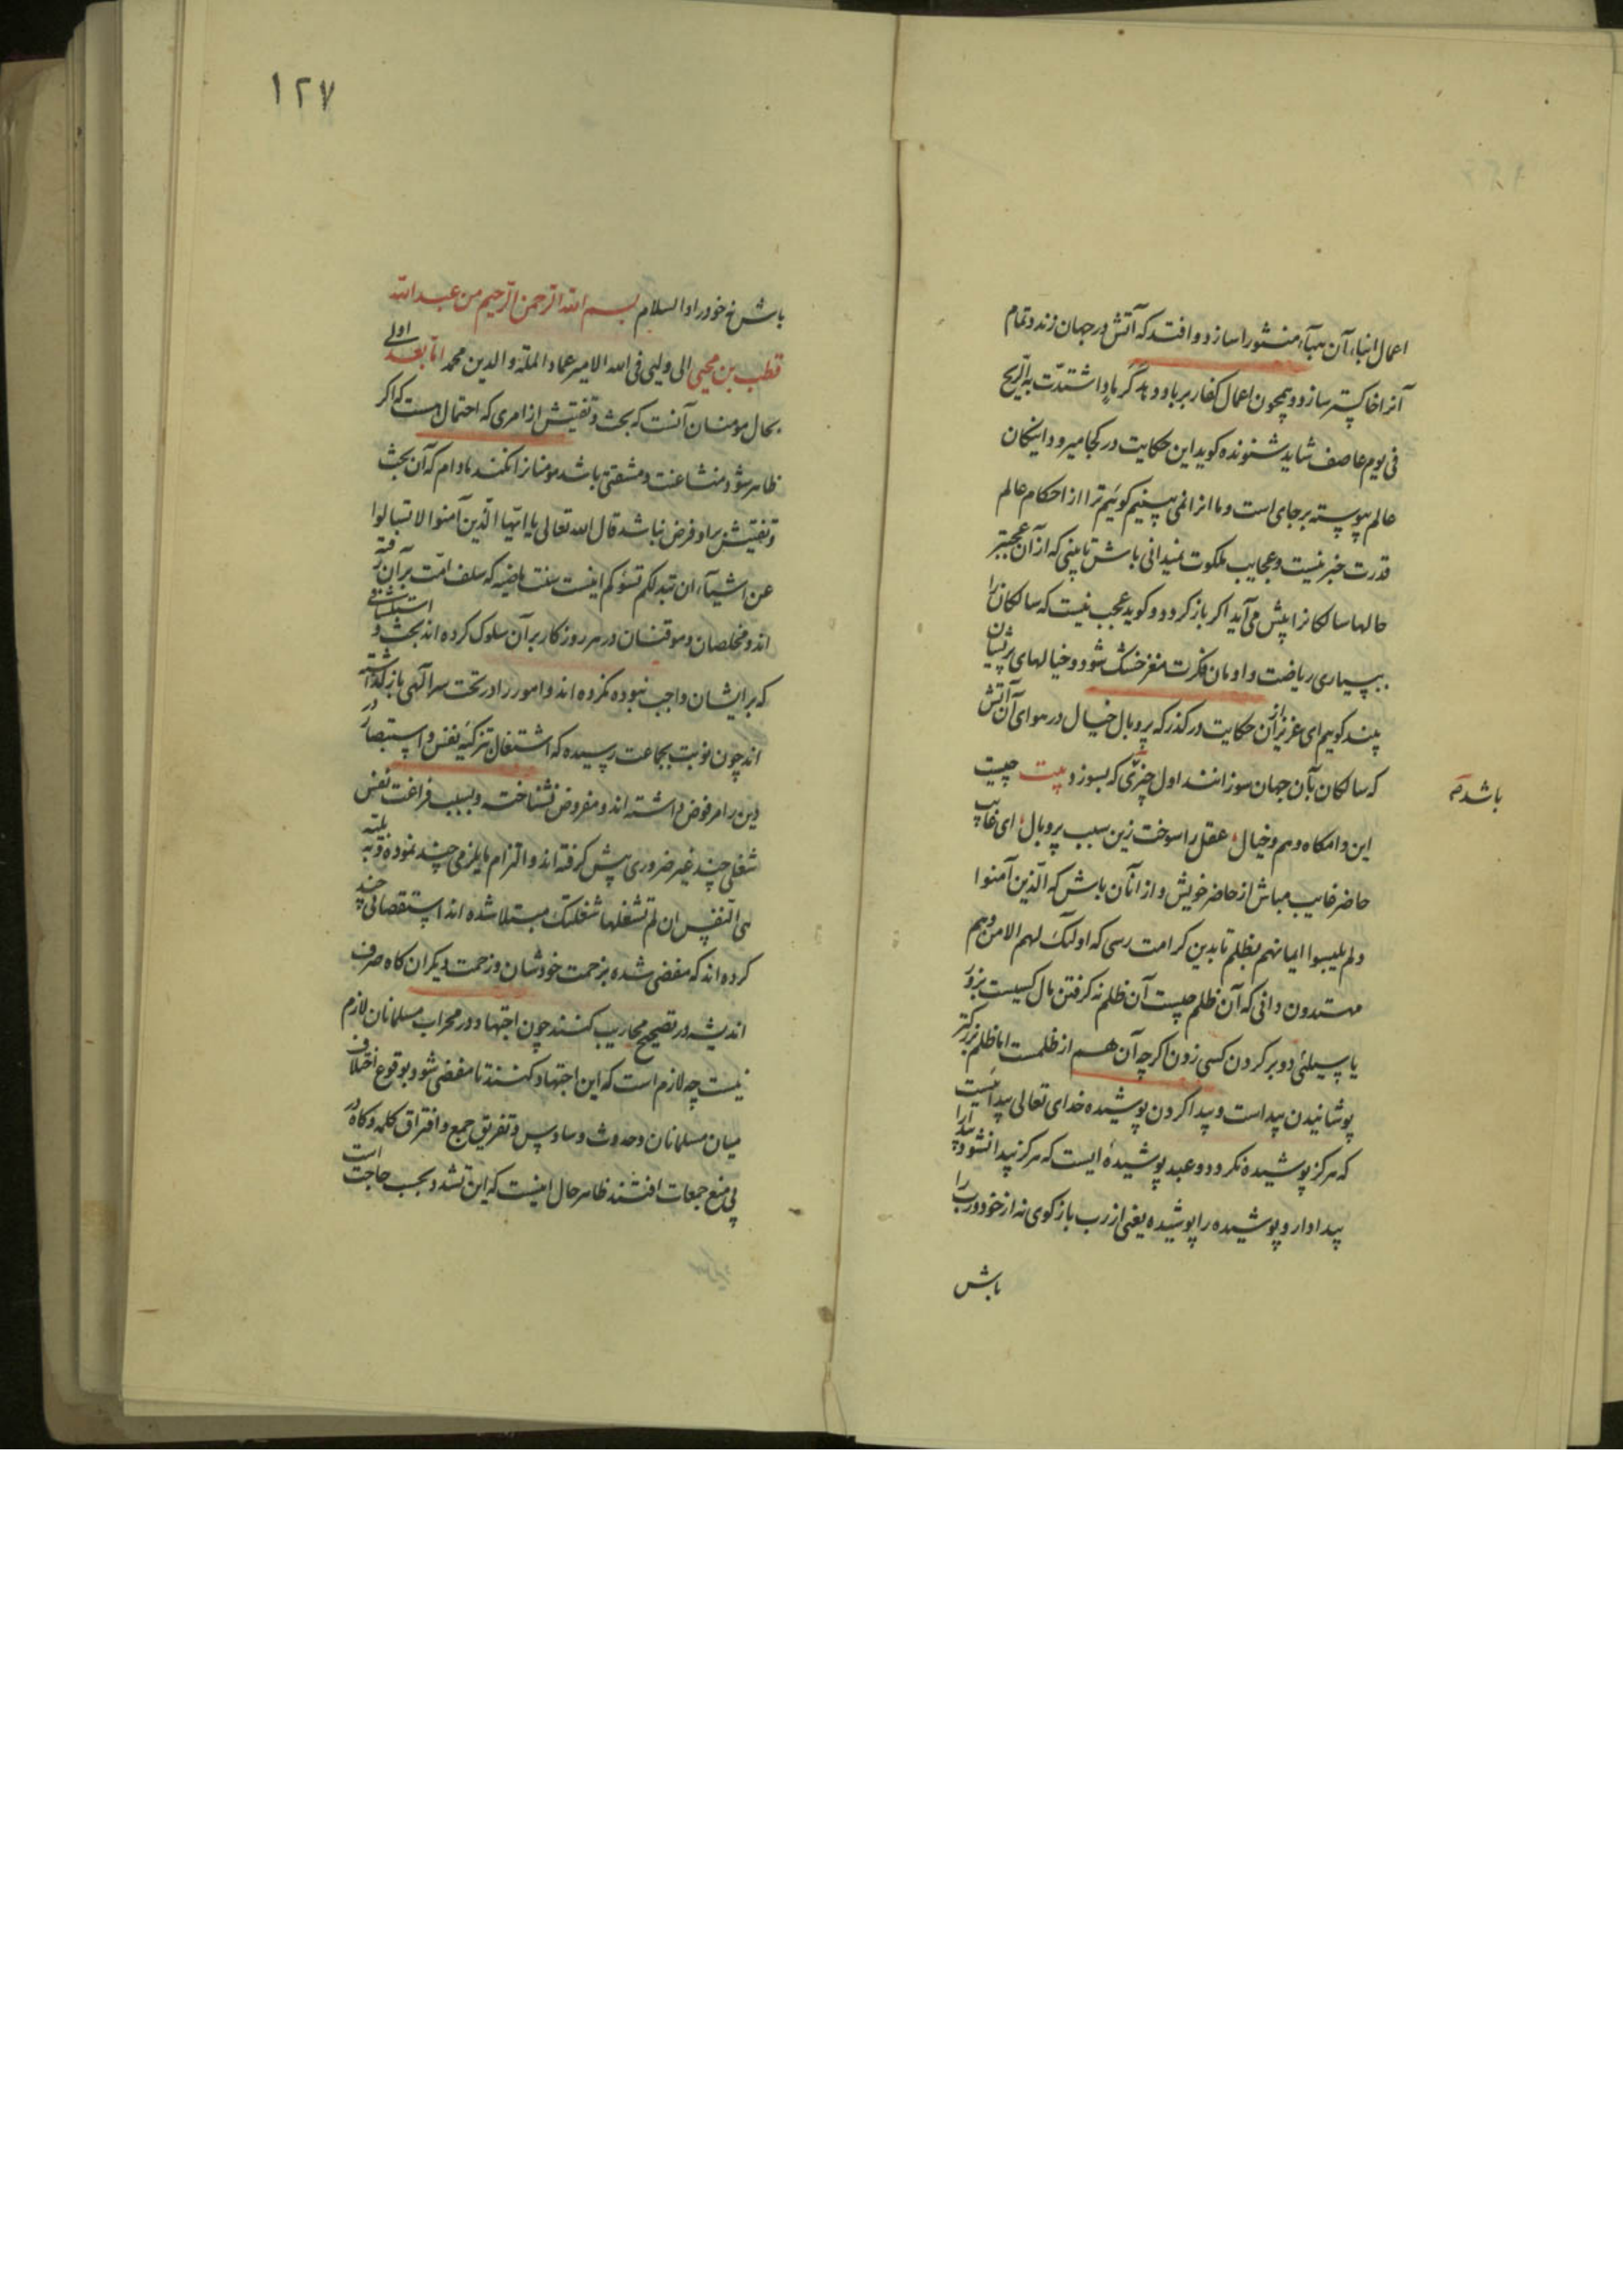 اعمال ابناء آن هباء منثورا سازد و افتد که آتش در جهان زند و تمام
آنرا خاکستر سازد و همچون اعمال کفار بر باد دهد کرماد اشتدت به الریح
فی یوم عاصف شاید شنونده کوید این حکایت در کجا میرود اینکان
عالم پیوسته برجای است و ما انرا نمی بینیم کوئیم ترا از احکام عالم
قدرت خبر نیست و عجایب ملکوت نمیدانی باش تا بینی که از آن عجبتر
حالها سالکانرا پیش می آید اکر باز کردد و کوید عجب نیست که سالکانرا
ببسیاری ریاضت و ادمان فکرت مغز خشک شود و خیالهای پریشان
بینند کوییم ای عزیز از آن حکایت در کذر که پر و بال خیال در هوای آن آتش
که سالکان بآن جهان سوزانند اول چیزی که بسوزد بیت چیست
باشد صح
این دامکاه وهم و خیال عقل را سوخت زین سبب پر و بال ای غایب
حاضر غایب مباش از حاضر خویش و از انان باش که الذین آمنوا
ولم یلبسوا ایمانهم بظلم تا بدین کرامت رسی که اولئک لهم الامن وهم
مهتدون دانی که آن ظلم چیست آن ظلم نه کرفتن مال کسیست بزور
یا سیلئی دو بر کردن کسی زدن اکرچه آن هم از ظلمست اما ظلم بزرکتر
پوشانیدن پیداست و پیدا کردن پوشیده خدای تعالی پیدائیست
که هرکز پوشیده نکردد و عبد پوشیدهٔ ایست که هرکز پیدا نشود پیدا را
پیدا دار و پوشیده را پوشیده یعنی از رب باز کوی نه از خود و رب را
باش
۱۲۷
باش نه خود را والسلام بسم الله الرحمن الرحیم من عبد الله
قطب بن محیی الی ولیی فی الله الامیر عماد الملة والدین محمد اما بعد اولی
بحال مومنان آنست که بحث و تفتیش از امری که احتمال هست که اکر
ظاهر شود منشا عنت و مشقتی باشد مومنانرا نکنند مادام که آن بحث
و تفتیش بر او فرض نباشد قال الله تعالی یا ایها الذین آمنوا لا تسالوا
عن اشیاء ان تبد لکم تسؤکم اینست سنت ماضیه که سلف امت بر آن رفته
اند و مخلصان و موقنان در هر روزکار بر آن سلوک کرده اند بحث و استکشافی
که بر ایشان واجب نبوده نکرده اند و امور را در تحت سر الهی باز کذاشته
اند چون نوبت بجماعت رسیده که اشتغال تزکیه نفس و استبصار در
دین را مرفوض داشته اند و مفروض نشناخته و بسبب فراغت نفس
شغلی چند غیر ضروری پیش کرفته اند و التزام مایلزمی چند نموده و به بلیه
هی النفس ان لم تشغلها شغلتک مبتلا شده اند استقصائی چند
کرده اند که مفضی شده بزحمت خودشان و زحمت دیکران کاه صرف
اندیشه در تصحیح محاریب کنند چون اجتهاد در محراب مسلمانان لازم
نیست چه لازم است که این اجتهاد کنند تا مفضی شود بوقوع اختلاف
میان مسلمانان و حدوث وساوس و تفریق جمع و افتراق کلمه و کاه در
پی منع جمعات افتند ظاهر حال اینست که این تشدد بحسب حاجت است